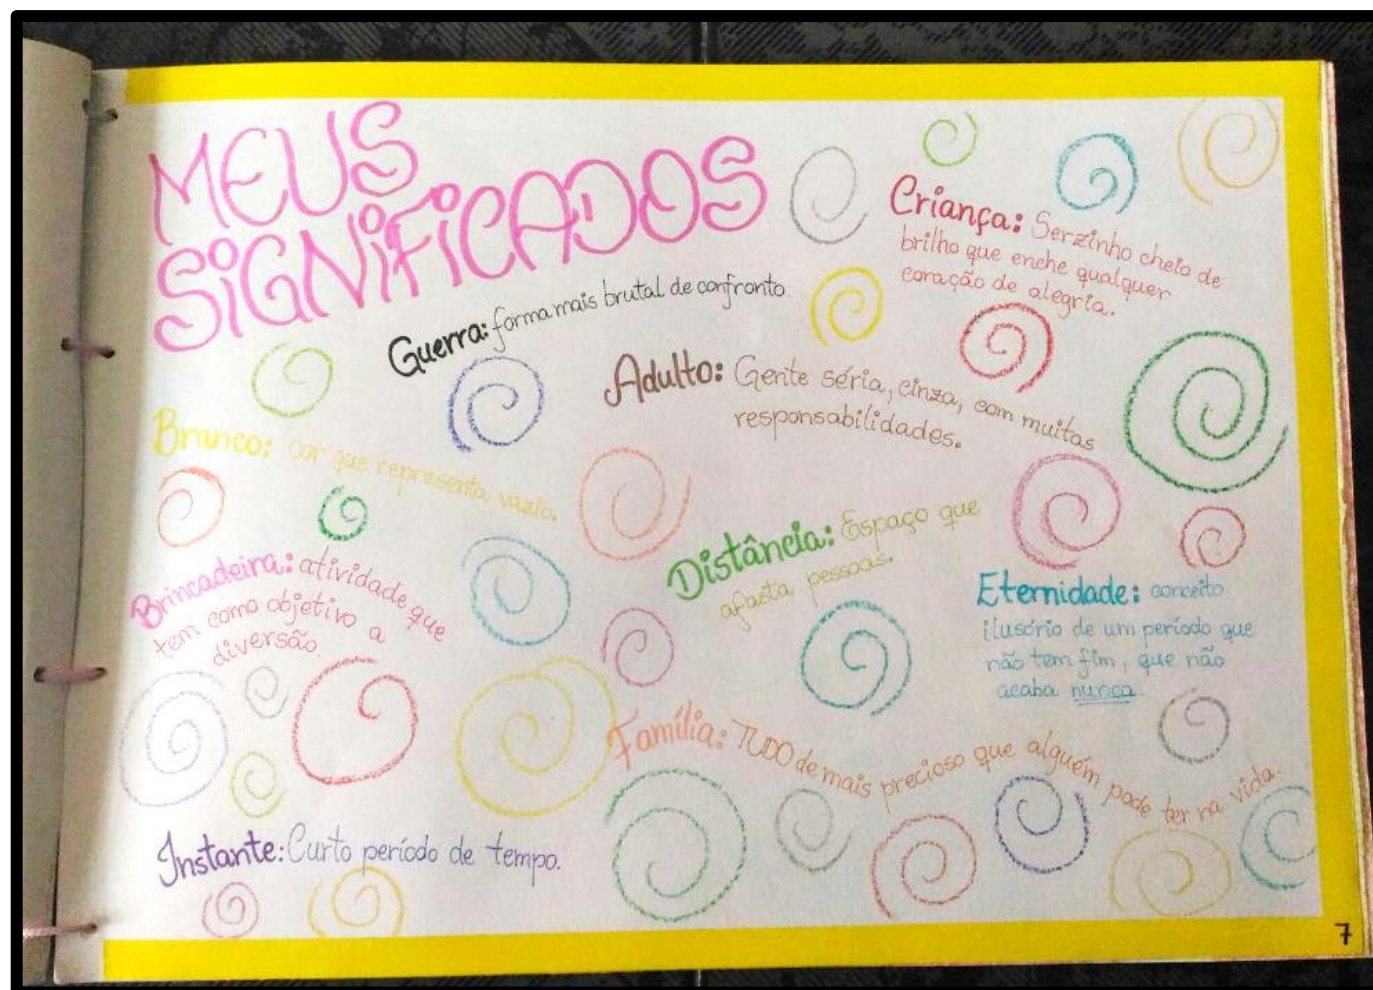 MEUS
SiGNiFiCADOS
Criança: Serzinho cheio de
brilho que enche qualquer
coração de alegria.
Guerra: forma mais brutal de confronto.
Adulto: Gente séria, cinza, com muitas
responsabilidades.
Branco: cor que representa vazio.
Distância: Espaço que
afasta pessoas.
Brincadeira: atividade que
tem como objetivo a
diversão.
Eternidade: conceito
ilusório de um período que
não tem fim, que não
acaba nunca.
Família: TUDO de mais precioso que alguém pode ter na vida.
Instante: Curto período de tempo.
7